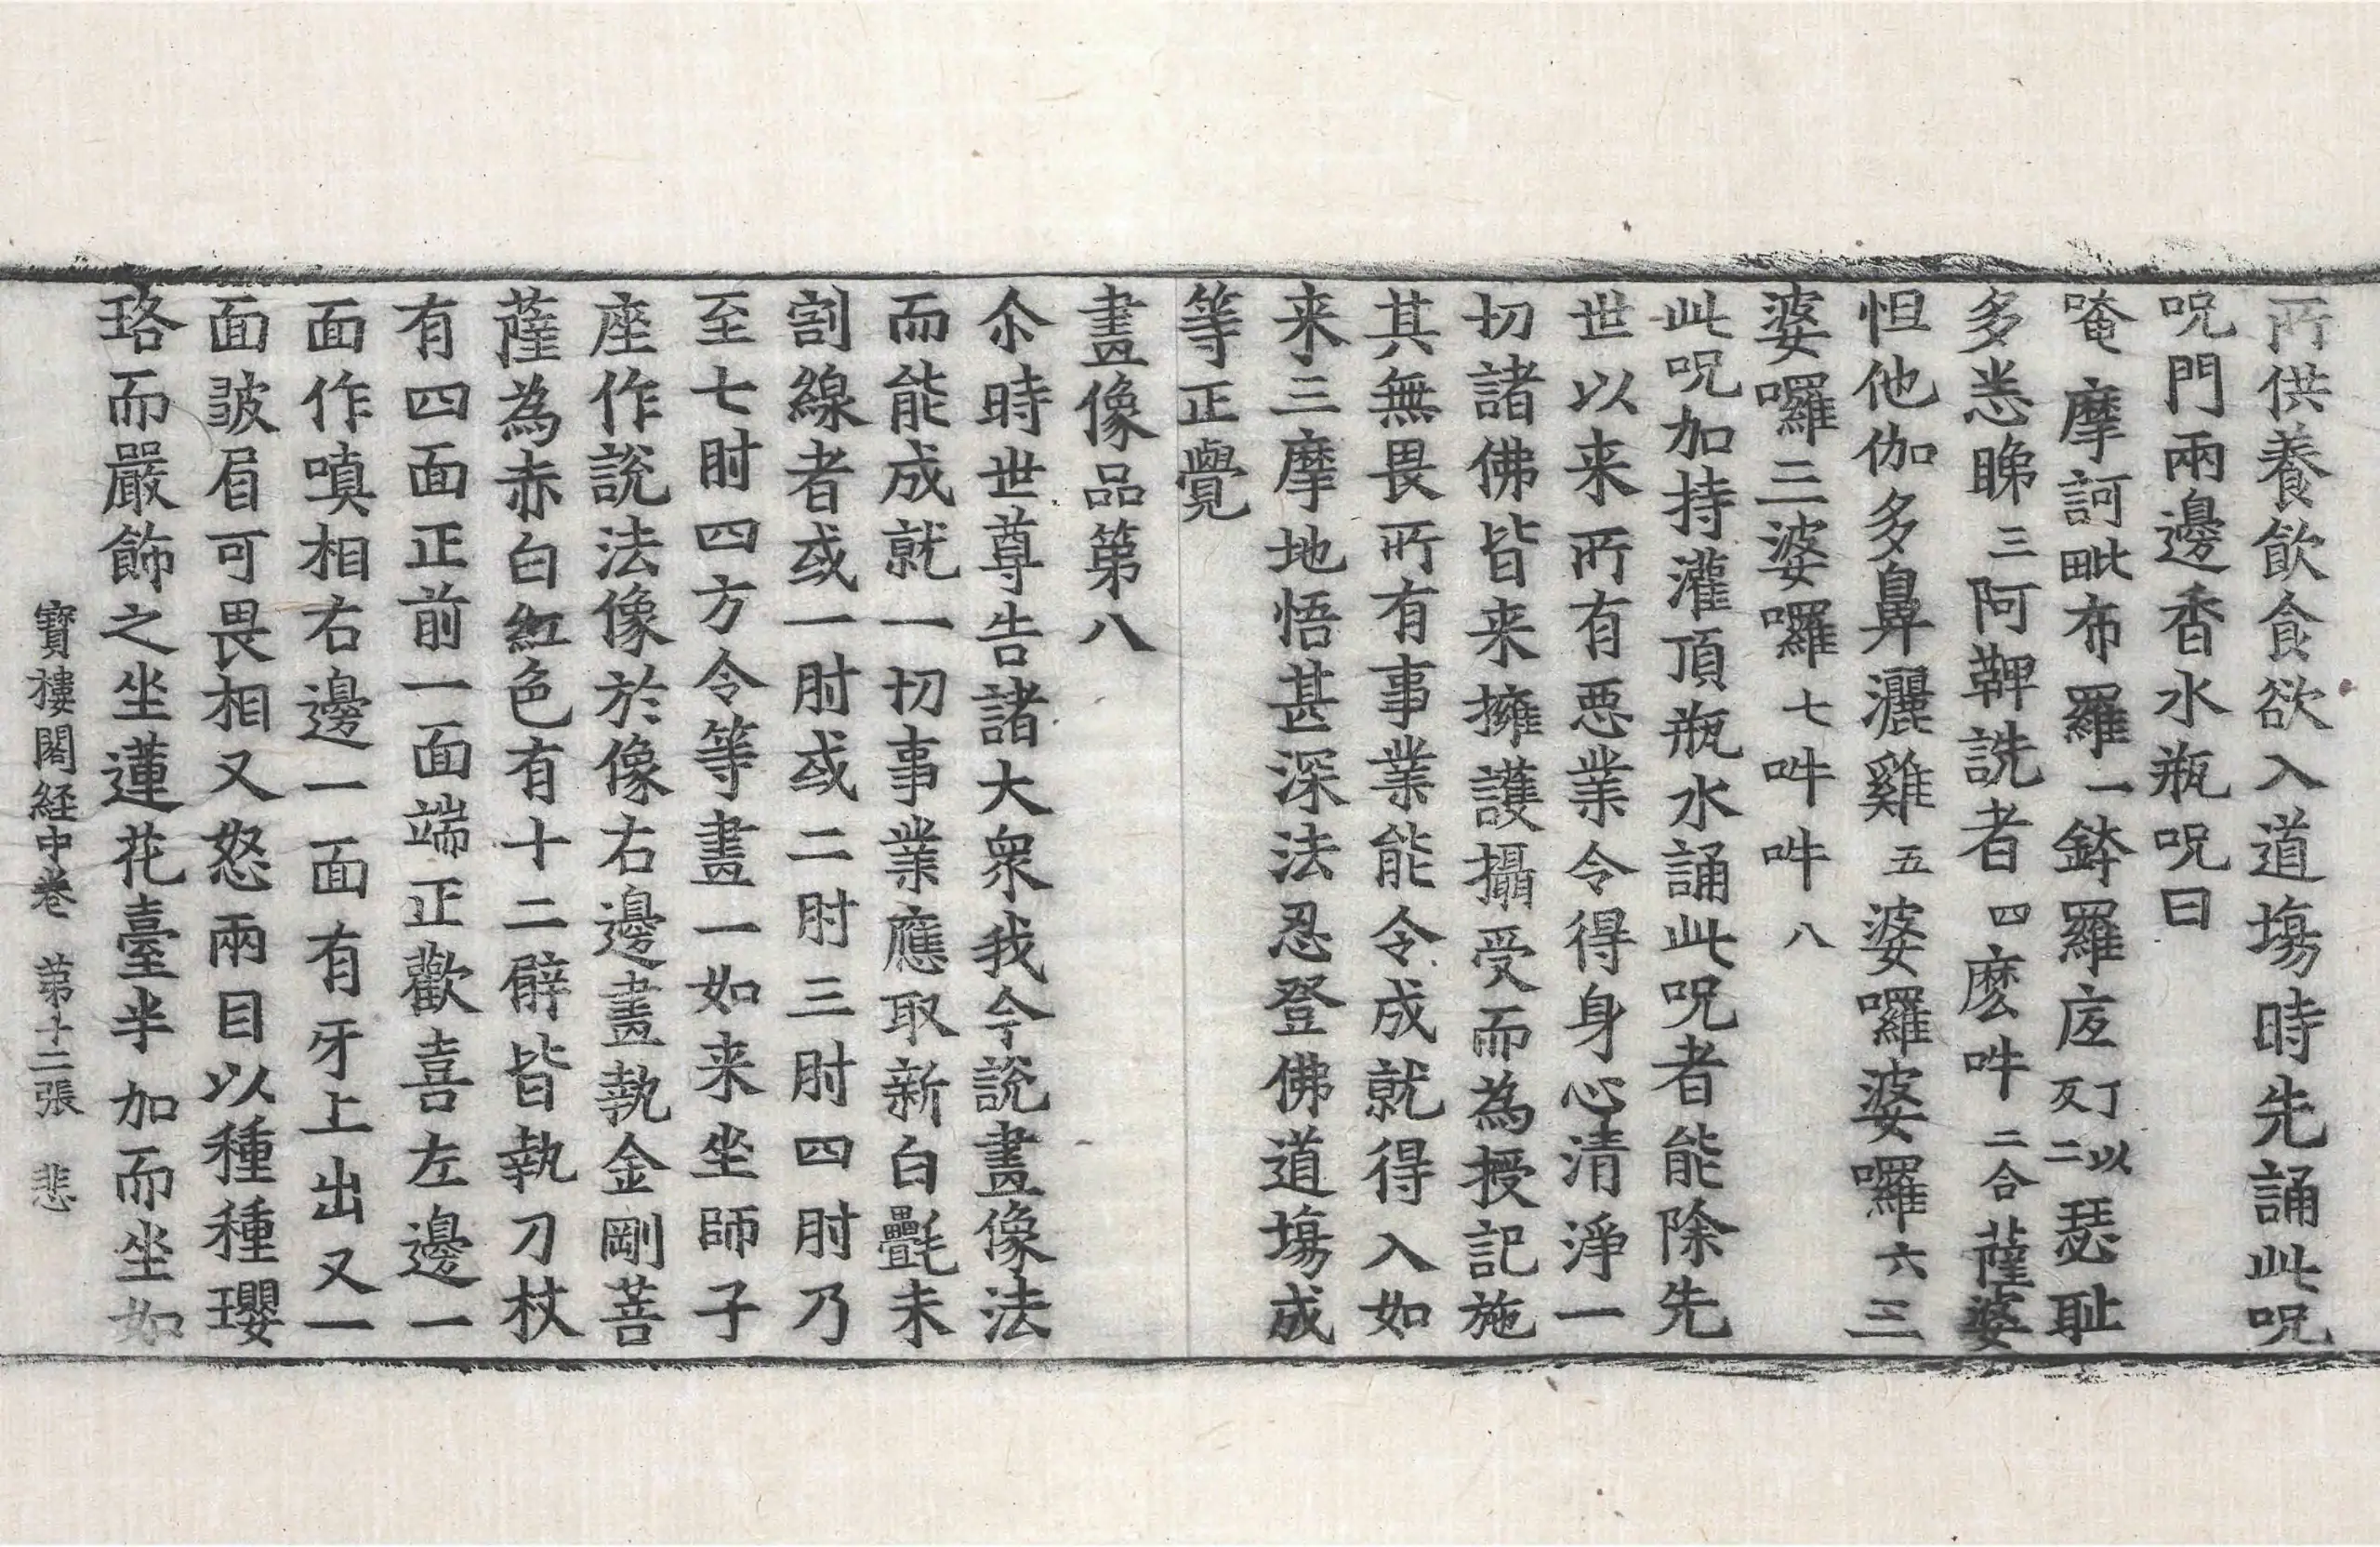 所供養飲食欲入道場時先誦此呪
呪門兩邊香水瓶呪曰
唵摩訶毗布羅一鉢羅底丁以反二瑟耻
多悉睇三阿鞞詵者四麽吽二合薩婆
怛他伽多鼻灑雞五婆囉婆囉六三
婆囉三婆囉七吽吽八
此呪加持灌頂瓶水誦此呪者能除先
世以来所有惡業令得身心清淨一
切諸佛皆来擁護攝受而為授記施
其無畏所有事業能令成就得入如
来三摩地悟甚深法忍登佛道場成
等正覺
畫像品第八
尒時世尊告諸大衆我今說畫像法
而能成就一切事業應取新白㲲未
割線者或一肘或二肘三肘四肘乃
至七肘四方令等畫一如来坐師子
座作說法像於像右邊畫執金剛菩
薩為赤白紅色有十二臂皆執刀杖
有四面正前一面端正歡喜左邊一
面作嗔相右邊一面有牙上出又一
面皺眉可畏相又怒兩目以種種瓔
珞而嚴飾之坐蓮花臺半加而坐如
寶樓閣経中卷 第十二張 悲